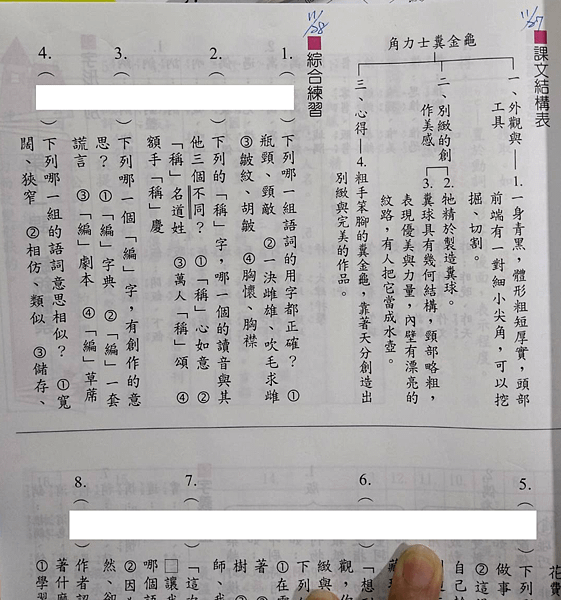 11/27
課文結構表
角力士糞金龜
一、外觀與
工具
1. 一身青黑，體形粗短厚實，頭部
前端有一對細小尖角，可以挖
掘、切割。
二、別緻的創
作美感
2. 牠精於製造糞球。
3. 糞球具有幾何結構，頸部略粗，
表現優美與力量，內壁有漂亮的
紋路，有人把它當成水壺。
三、心得
4. 粗手笨腳的糞金龜，靠著天分創造出
別緻與完美的作品。
11/28
綜合練習
1. （ ）下列哪一組語詞的用字都正確？ ①
瓶頸、頸敵 ②一決雌雄、吹毛求雌
③皺紋、胡皺 ④胸懷、胸襟
2. （ ）下列的「稱」字，哪一個的讀音與其
他三個不同？ ①「稱」心如意 ②
「稱」名道姓 ③萬人「稱」頌 ④
額手「稱」慶
3. （ ）下列哪一個「編」字，有創作的意
思？ ①「編」字典 ②「編」一套
謊言 ③「編」劇本 ④「編」草蓆
4. （ ）下列哪一組的語詞意思相似？ ①寬
闊、狹窄 ②相仿、類似 ③儲存、
花費
5. （ ）下列
做事
②這
自己
6. （ ）「想
觀，你
緻與
下列
①在
著
樹
師、我
7. （ ）「這
□讓我
哪個語
②因為
然、卻
8. （ ）作者認
著什麼
①學習